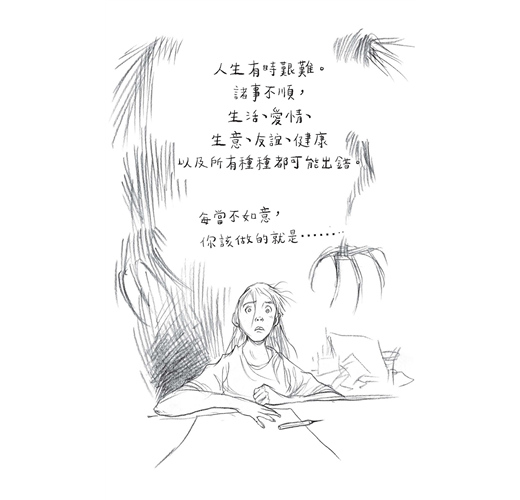 人生有時艱難。
諸事不順，
生活、愛情、
生意、友誼、健康
以及所有種種都可能出錯。
每當不如意，
你該做的就是………